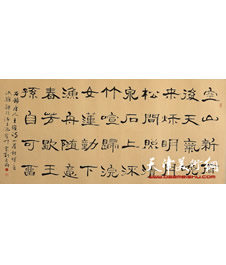 空山新雨
後天氣晚
來秋明月
松間照清
泉石上流
竹喧歸浣
女蓮動下
漁舟隨意
春芳歇王
孫自可留
天津美術網